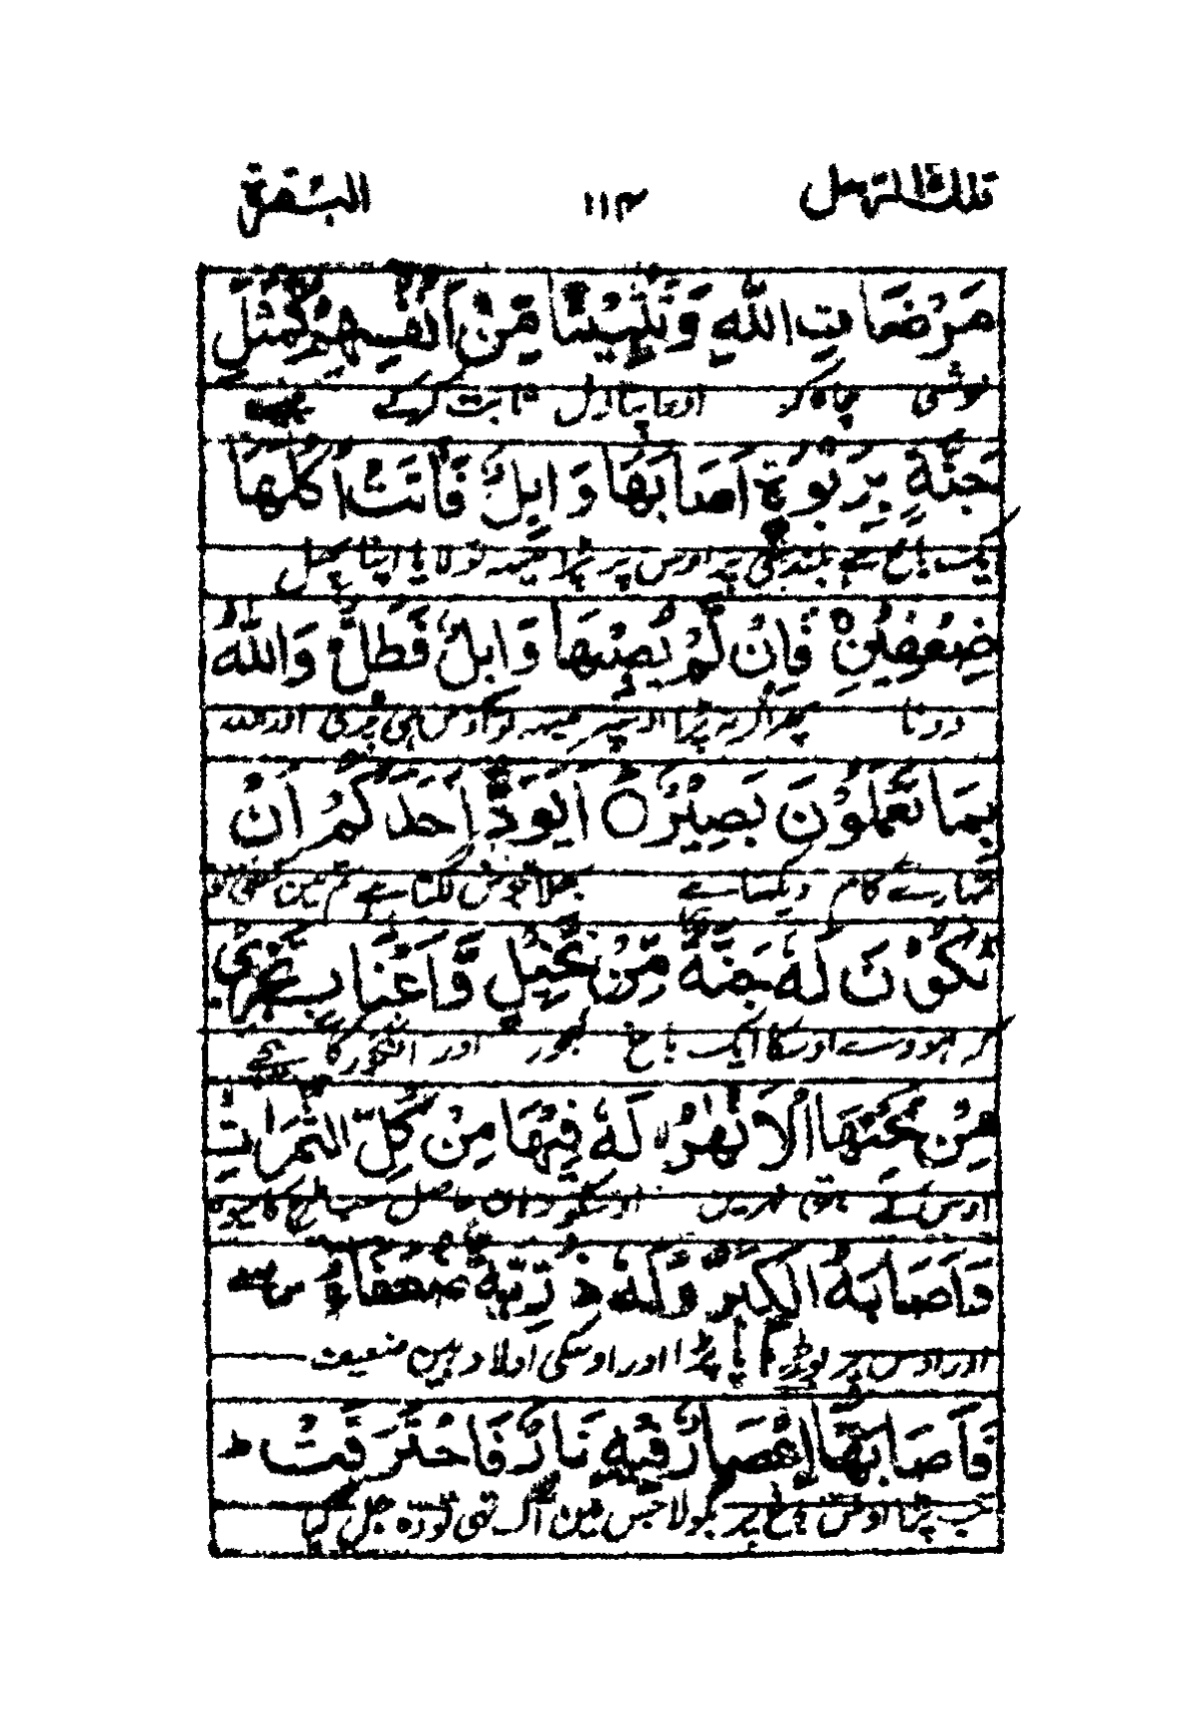 تلك الرسل ١١٣ البقرة
مَرْضَاتِ اللّٰهِ وَتَثْبِيْتًا مِّنْ اَنْفُسِهِمْ كَمَثَلِ
خوشی چاہ کر اور اپنا دل ثابت کرکے جیسے
جَنَّةٍۭ بِرَبْوَةٍ اَصَابَهَا وَابِلٌ فَاٰتَتْ اُكُلَهَا
ایک باغ ہے بلندی پر اوس پر پڑا مینہہ تو لایا اپنا پھل
ضِعْفَيْنِ ۚ فَاِنْ لَّمْ يُصِبْهَا وَابِلٌ فَطَلٌّ وَاللّٰهُ
دونا پھر اگر نہ پڑا اوسپر مینہہ تو اوس ہی پڑی اور اللہ
بِمَا تَعْمَلُوْنَ بَصِيْرٌ ○ اَيَوَدُّ اَحَدُكُمْ اَنْ
تمہارے کام دیکھتا ہے بھلا خوش لگتا ہے تم مین کسی کو
تَكُوْنَ لَهٗ جَنَّةٌ مِّنْ نَّخِيْلٍ وَّاَعْنَابٍ تَجْرِيْ
کہ ہووے اوسکا ایک باغ کھجور اور انگور کا نیچے
مِنْ تَحْتِهَا الْاَنْهٰرُ لَهٗ فِيْهَا مِنْ كُلِّ الثَّمَرَاتِ
اوس کے بہتی نہرین اوسکو وہان حاصل سب طرح کا میوہ
وَاَصَابَهُ الْكِبَرُ وَلَهٗ ذُرِّيَّةٌ ضُعَفَاۤءُ
اور اوس پر بڑھاپا پڑا اور اوسکی اولاد ہین ضعیف
فَاَصَابَهَا اِعْصَارٌ فِيْهِ نَارٌ فَاحْتَرَقَتْ ط
تب پڑا اوس باغ پر بگولا جس مین آگ تھی تو وہ جل گیا